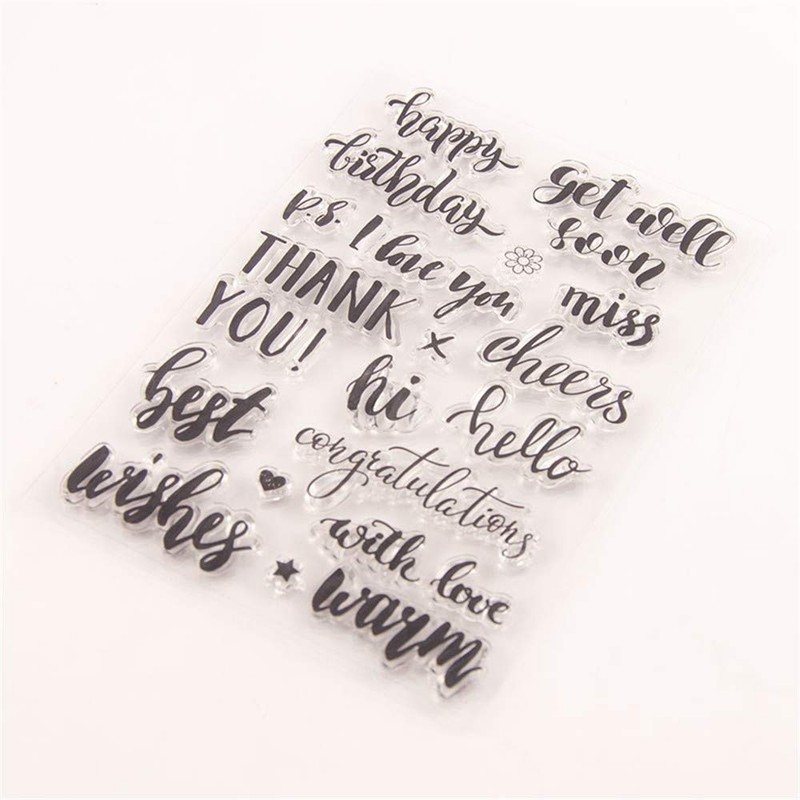 happy
birthday
p.s. I love you
THANK
YOU!
x
best
wishes
get well
soon
miss
cheers
hi
hello
congratulations
with love
warm